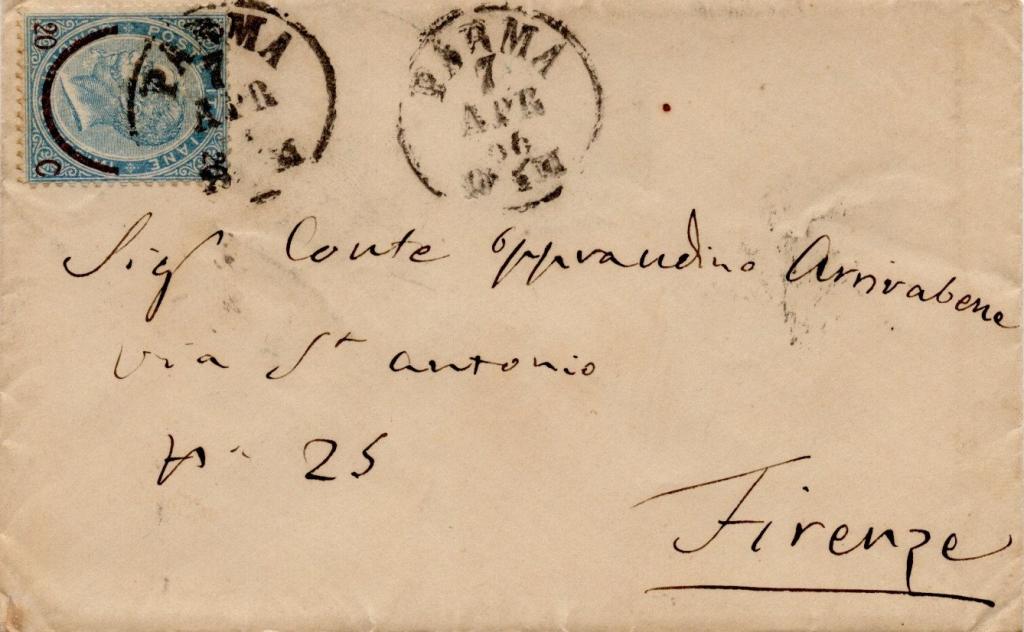 20 20
C
POSTE ITALIANE
PARMA
7
APR
PARMA
7
APR
66
Sigr Conte Opprandino Arrivabene
Via St Antonio
No 25
Firenze